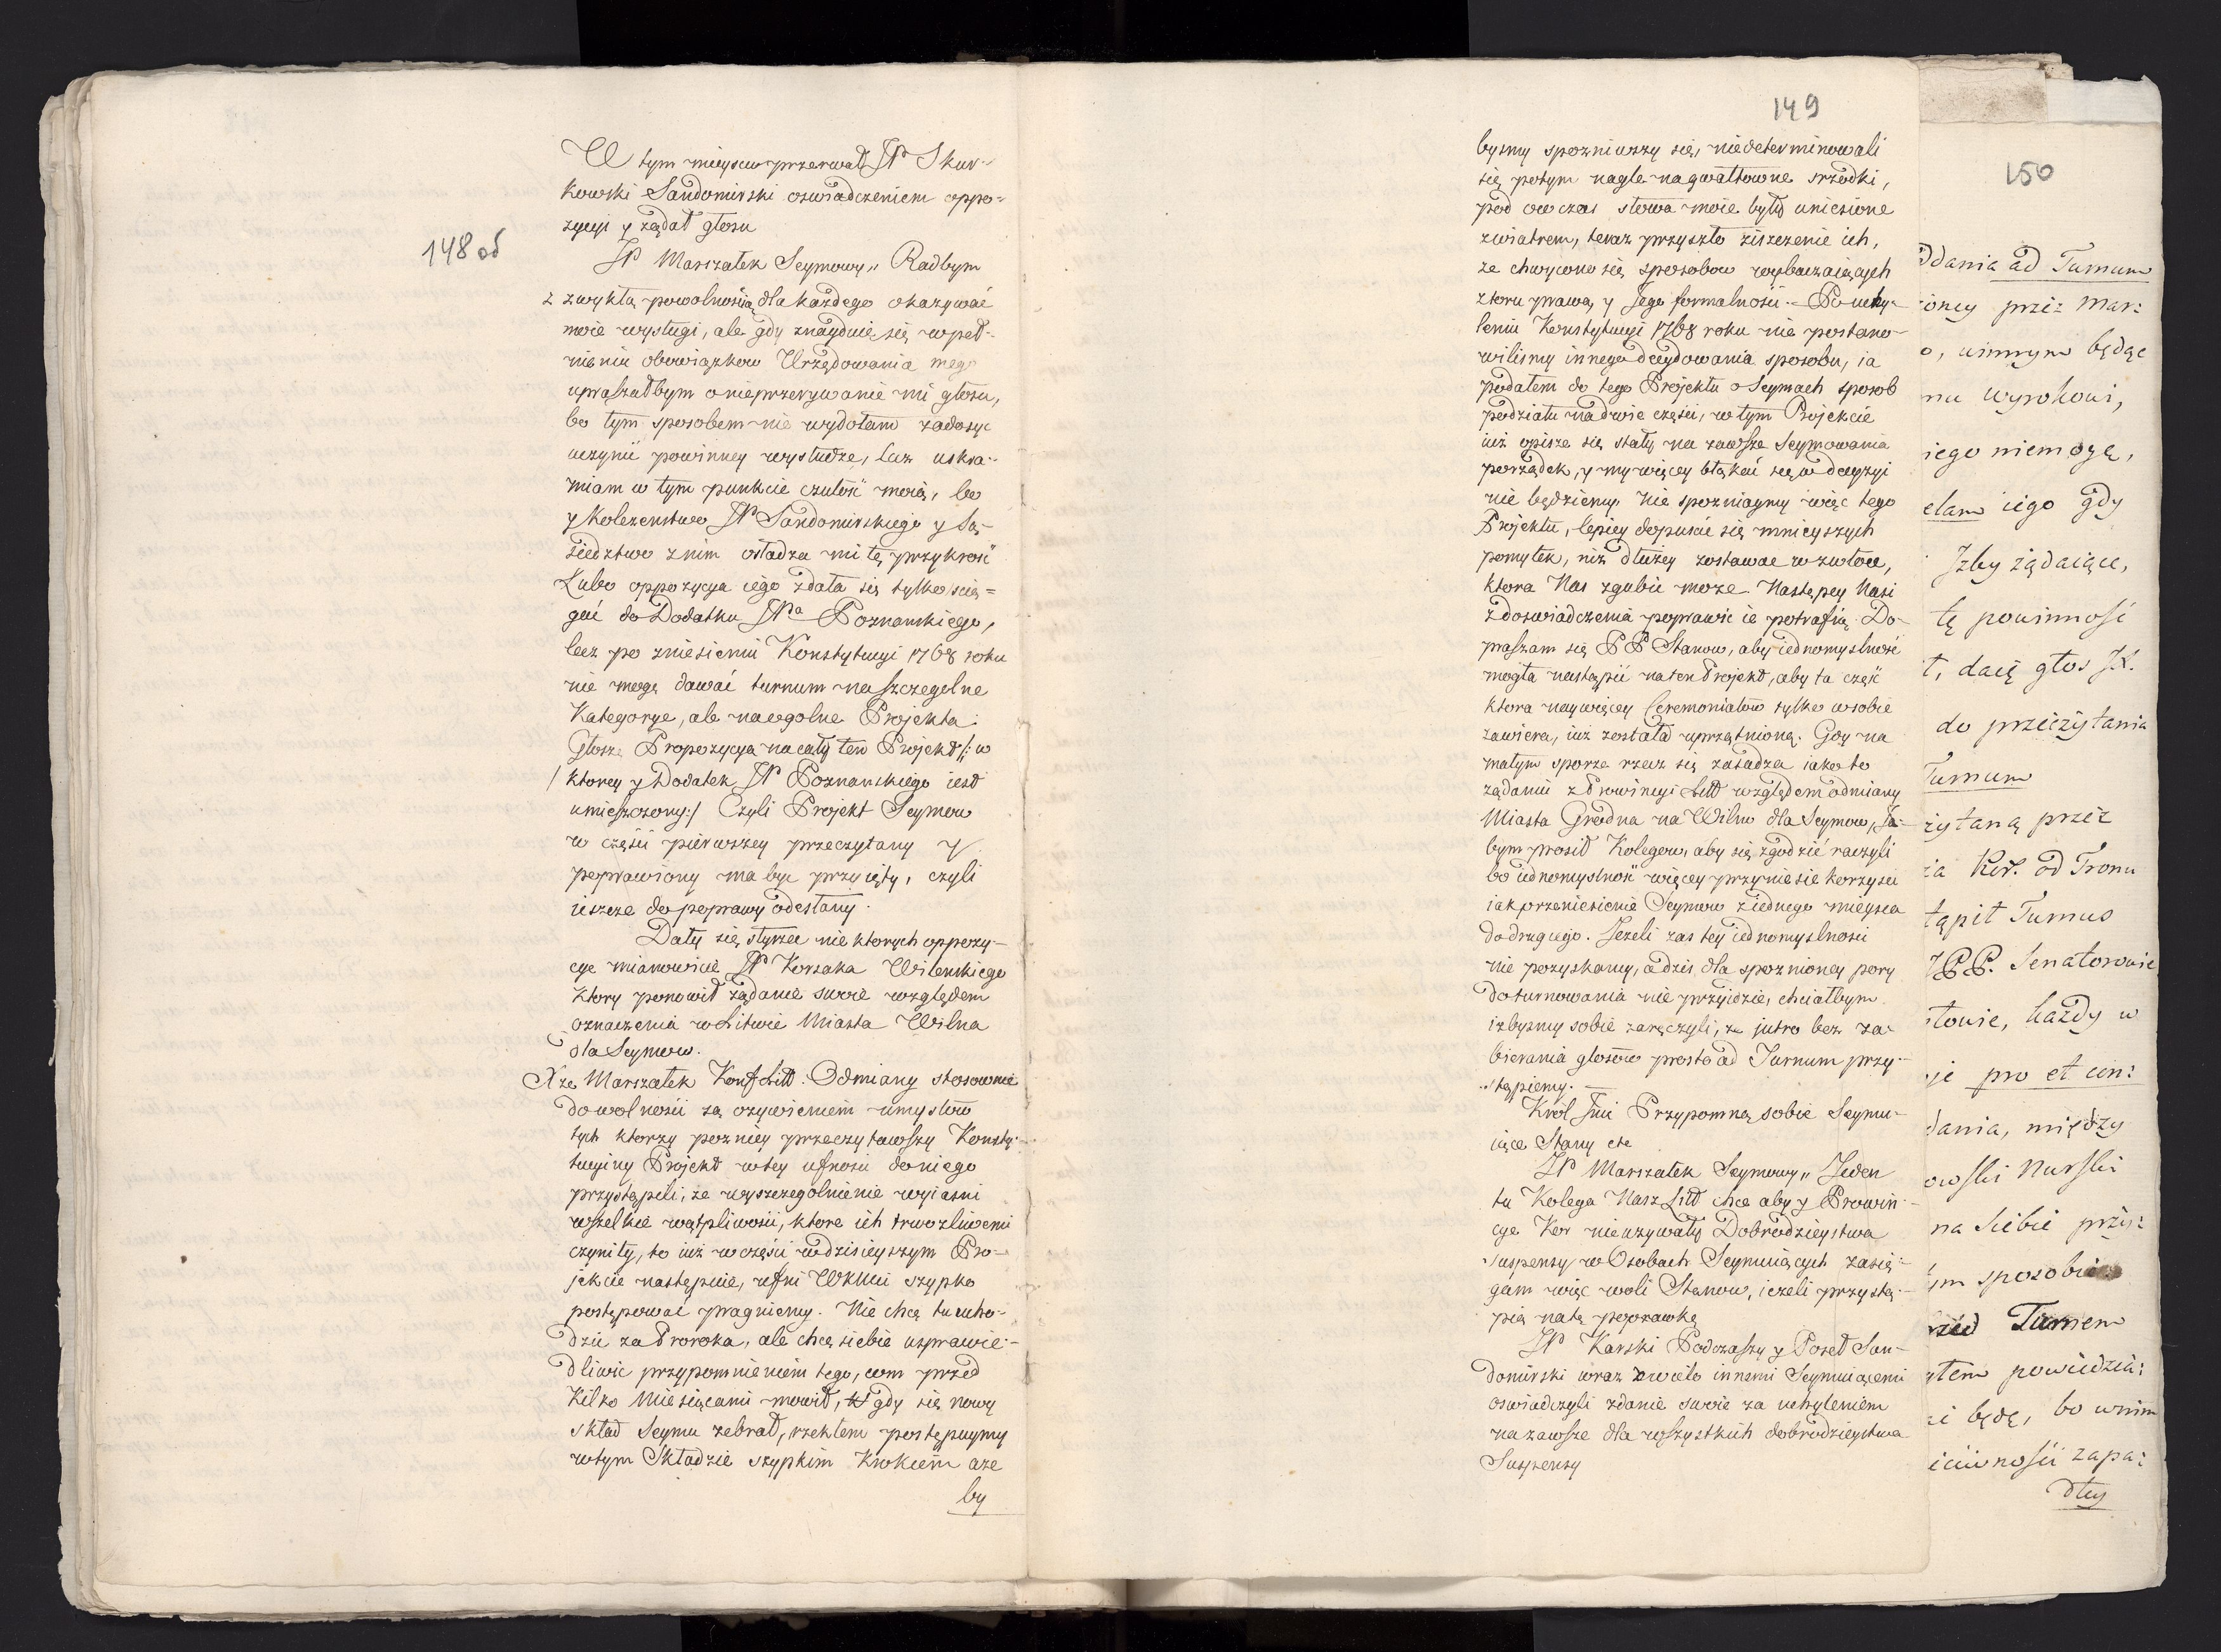 148 об
W tym mieyscu przerwał JP Skur-
kowski Sandomirski oswiadczeniem oppo-
zycyi y żądał głosu
JP Marszałek Seymowy„ Radbym
z zwykłą powolnością dla każdego okazywać
moie wysługi, ale gdy znayduię się w peł-
nieniu obowiązkow Urzędowania mego
upraszałbym o nieprzerywanie mi głosu,
bo tym sposobem nie wydołam zadosyc
uczynić powinney wysłudze, lecz uskra-
miam w tym punkcie czułość moią, bo
y Kolezenstwo JP Sandomirskiego y Są-
siedztwo z nim osładza mi tę przykrość
Lubo oppozycya iego zdała się tylko scią-
gać do Dodatku JPa Poznanskiego,
lecz po zniesieniu Konstytucyi 1768 roku
nie mogę dawać turnum na szczegolne
Kategorye, ale na ogolne Projekta.
Głoszę Propozycyą na cały ten Projekt /: w
/ ktorey y Dodatek JP Poznanskiego iest
umieszczony :/ Czyli Projekt Seymow
w części pierwszey przeczytany y
poprawiony ma byc przyięty, czyli
ieszcze do poprawy odesłany.
Dały się słyszec nie ktorych oppozy-
cye mianowicie JP Korsaka Wilenskiego
ktory ponowił żądanie swoie względem
oznaczenia w Litwie Miasta Wilna
dla Seymow.
Xże Marszałek Konf Litt. Odmiany stosownie
do wolności są ozywieniem umysłow
tych ktorzy pozniey przeczytawszy Konsty-
tucyiny Projekt w tey ufności do niego
przystąpili, że wyszczegolnienie wyiaśni
wszelkie wątpliwości, ktore ich trwozliwemi
czyniły, to iuż w części w dzisieyszym Pro-
jekcie następuie, ufni WKMci szypko
postępować pragniemy. Nie chcę tu ucho-
dzić za Proroka, ale chcę siebie usprawie-
dliwic przypomnieniem tego, com przed
Kilko Miesiącami mowił, gdy się nowy
skład Seymu zebrał, rzekłem postępuymy
w tym Składzie szypkim Krokiem aze
by
149
bysmy spozniwszy się, niedeterminowali
się potym nagle na gwałtowne srzodki,
pod ow czas słowa moie były uniesione
z wiatrem, teraz przyszło ziszczenie ich,
ze chwycono się sposobow wybaczaiących
z toru prawa, y Jego formalności. Po uchy-
leniu Konstytucyi 1768 roku nie postano-
wilismy innego decydowania sposobu, ia
podałem do tego Projektu o Seymach sposob
podziału na dwie części, w tym Projekcie
iuż opisze się stały na zawsze Seymowania
porządek, y my więcey błąkać się w decyzyi
nie będziemy. Nie spozniaymy więc tego
Projektu, lepiey dopuscić się mnieyszych
pomyłek, niż dłużey zostawac w zwłoce,
ktora Nas zgubic moze. Następcy Nasi
z doswiadczenia poprawic ie potrafią. Do-
praszam się PP Stanow, aby iednomyslność
mogła nastąpić na ten Projekt, aby ta część
ktora naywięcey Ceremoniałow tylko w sobie
zawiera, iuż została uprzątnioną. Gdy na
małym sporze rzecz się zasadza iako to
żądaniu z Prowincyi Litt względem odmiany
Miasta Grodna na Wilno dla Seymow, Ja-
bym prosił Kolegow, aby się zgodzić raczyli
bo iednomyslność więcey przyniesie korzysci
iak przeniesienie Seymow z iednego mieysca
do drugiego. Jezeli zas tey iednomyslności
nie pozyskamy, a dziś dla spoznioney pory
do turnowania nie przyidzie, chciałbym
izbysmy sobie zaręczyli, że jutro bez za-
bierania głosow prosto ad Turnum przy-
stąpiemy.
Krol Jmci Przypomną sobie Seymu-
iące Stany etc
JP Marszałek Seymowy„ Jeden
tu Kolega Nasz Litt chce aby y Prowin-
cye Kor nie uzywały Dobrodzieystwa
suspensy w Osobach Seymuiących zasię-
gam więc woli Stanow, iezeli przystą-
pią na tę poprawkę
JP Karski Podczaszy y Poseł San-
domirski wraz z wielo innemi Seymuiącemi
oswiadczyli zdanie swoie za uchyleniem
na zawsze dla wszystkich dobrodzieystwa
Suspensy
150
ddania ad Turnum
ioney przez Mar:
o, winnym będąc
mu wyrokowi,
iego niemogę,
elam iego gdy
Jzby żądaiące,
tę powinność
t, daię głos JX.
do przeczytania
Turnum
zytaną przez
ia Kor. od Tronu
tąpił Turnus
JPP. Senatorowie
słowie, każdy w
je pro et con:
dania, między
owski Nurski
na siebie przy:
ym sposobie
rzed Turnem
ytem powiedzia:
i będę, bo w nim
iciwności zapa:
dłey